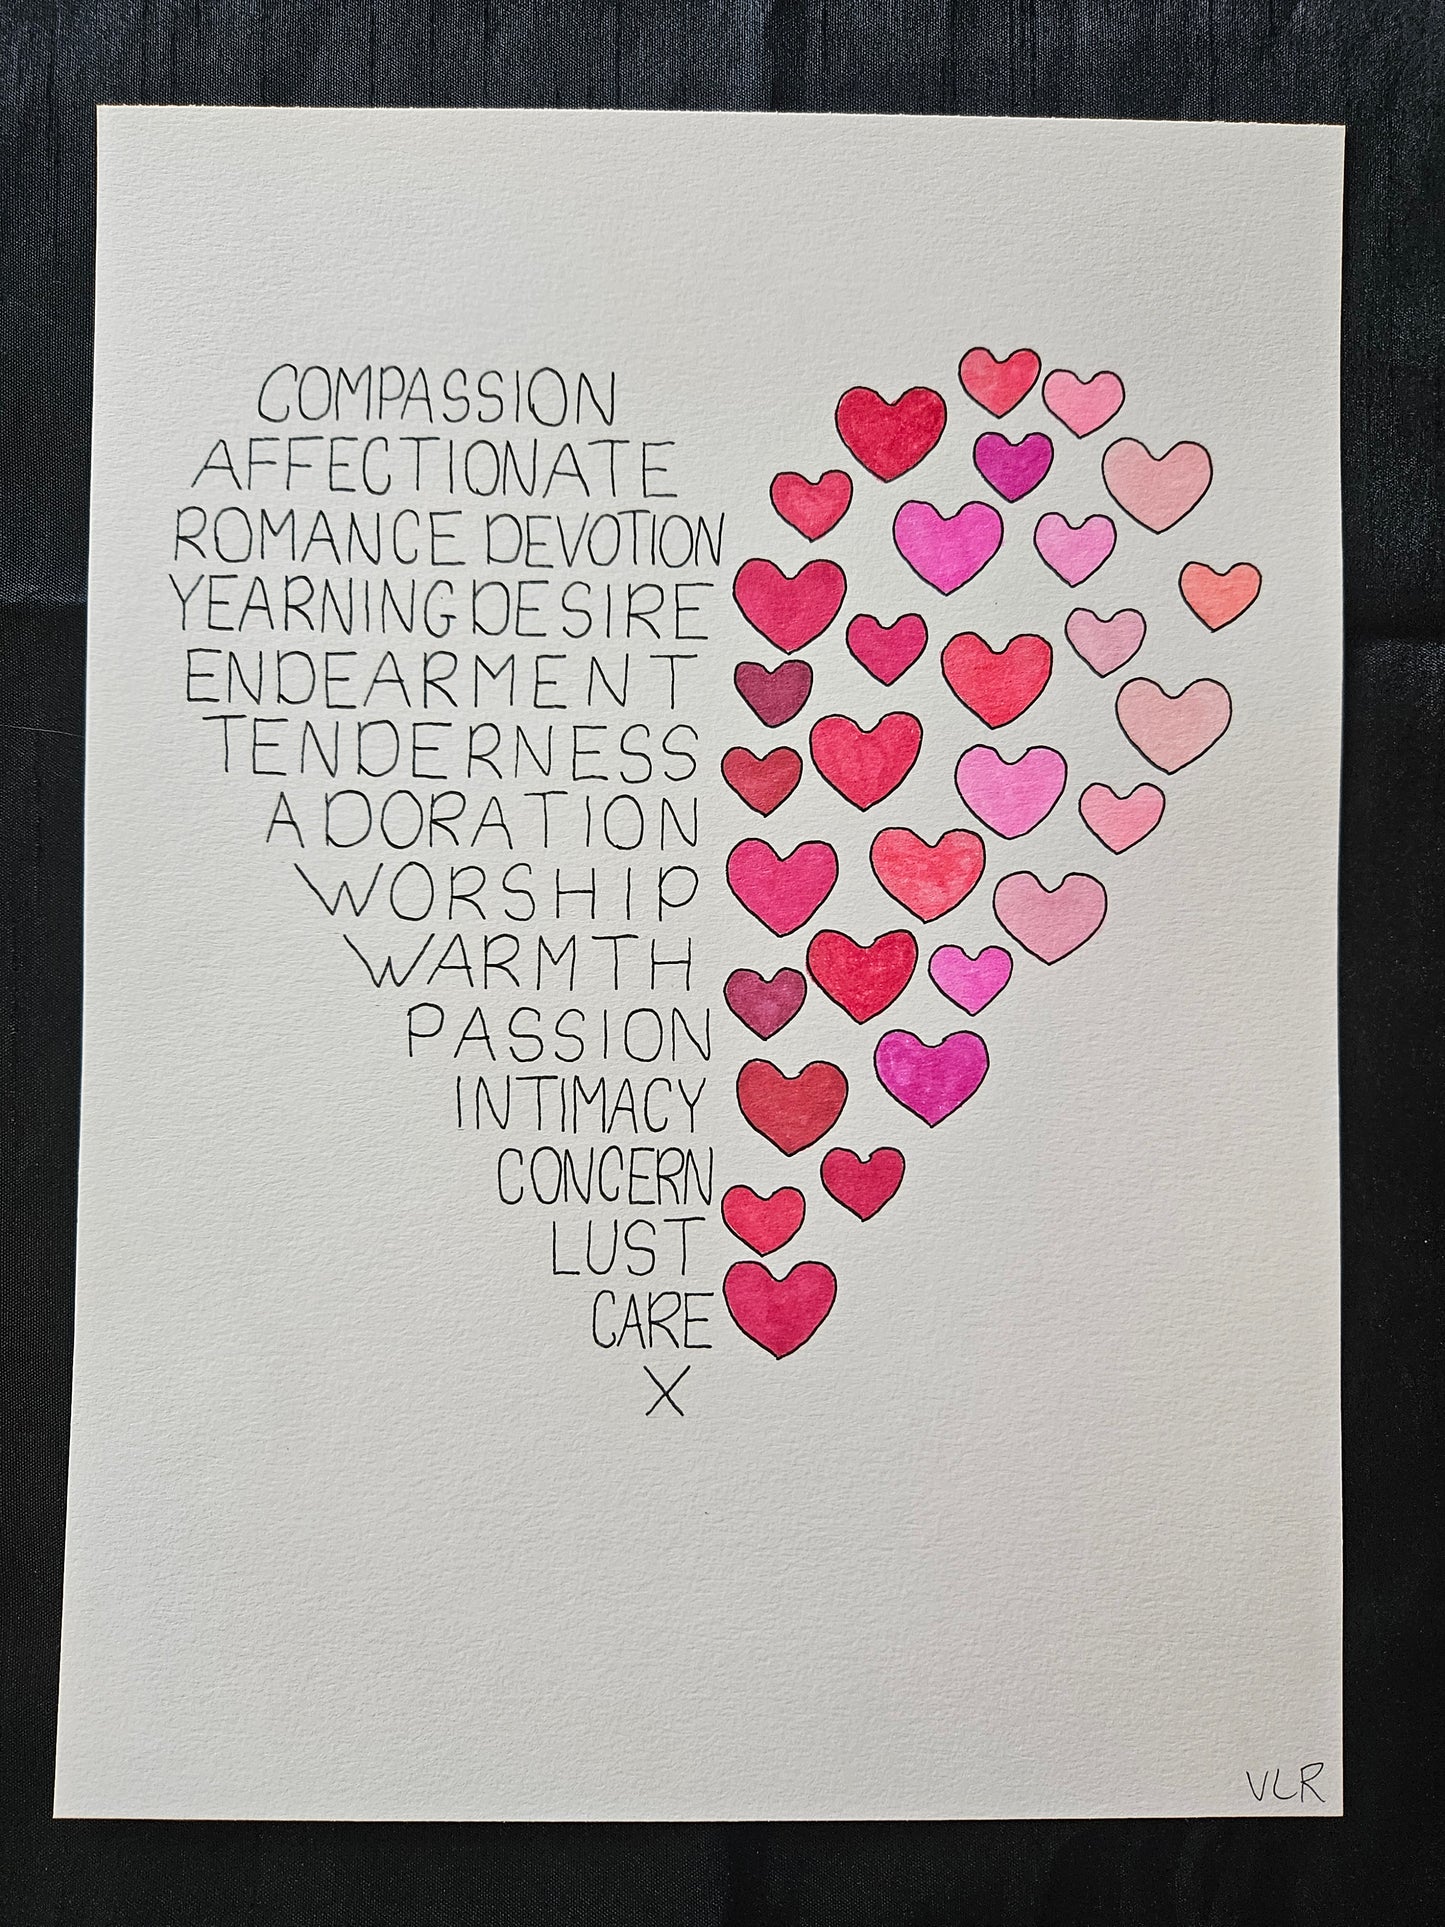 COMPASSION
AFFECTIONATE
ROMANCE DEVOTION
YEARNING DESIRE
ENDEARMENT
TENDERNESS
ADORATION
WORSHIP
WARMTH
PASSION
INTIMACY
CONCERN
LUST
CARE
X
VLR